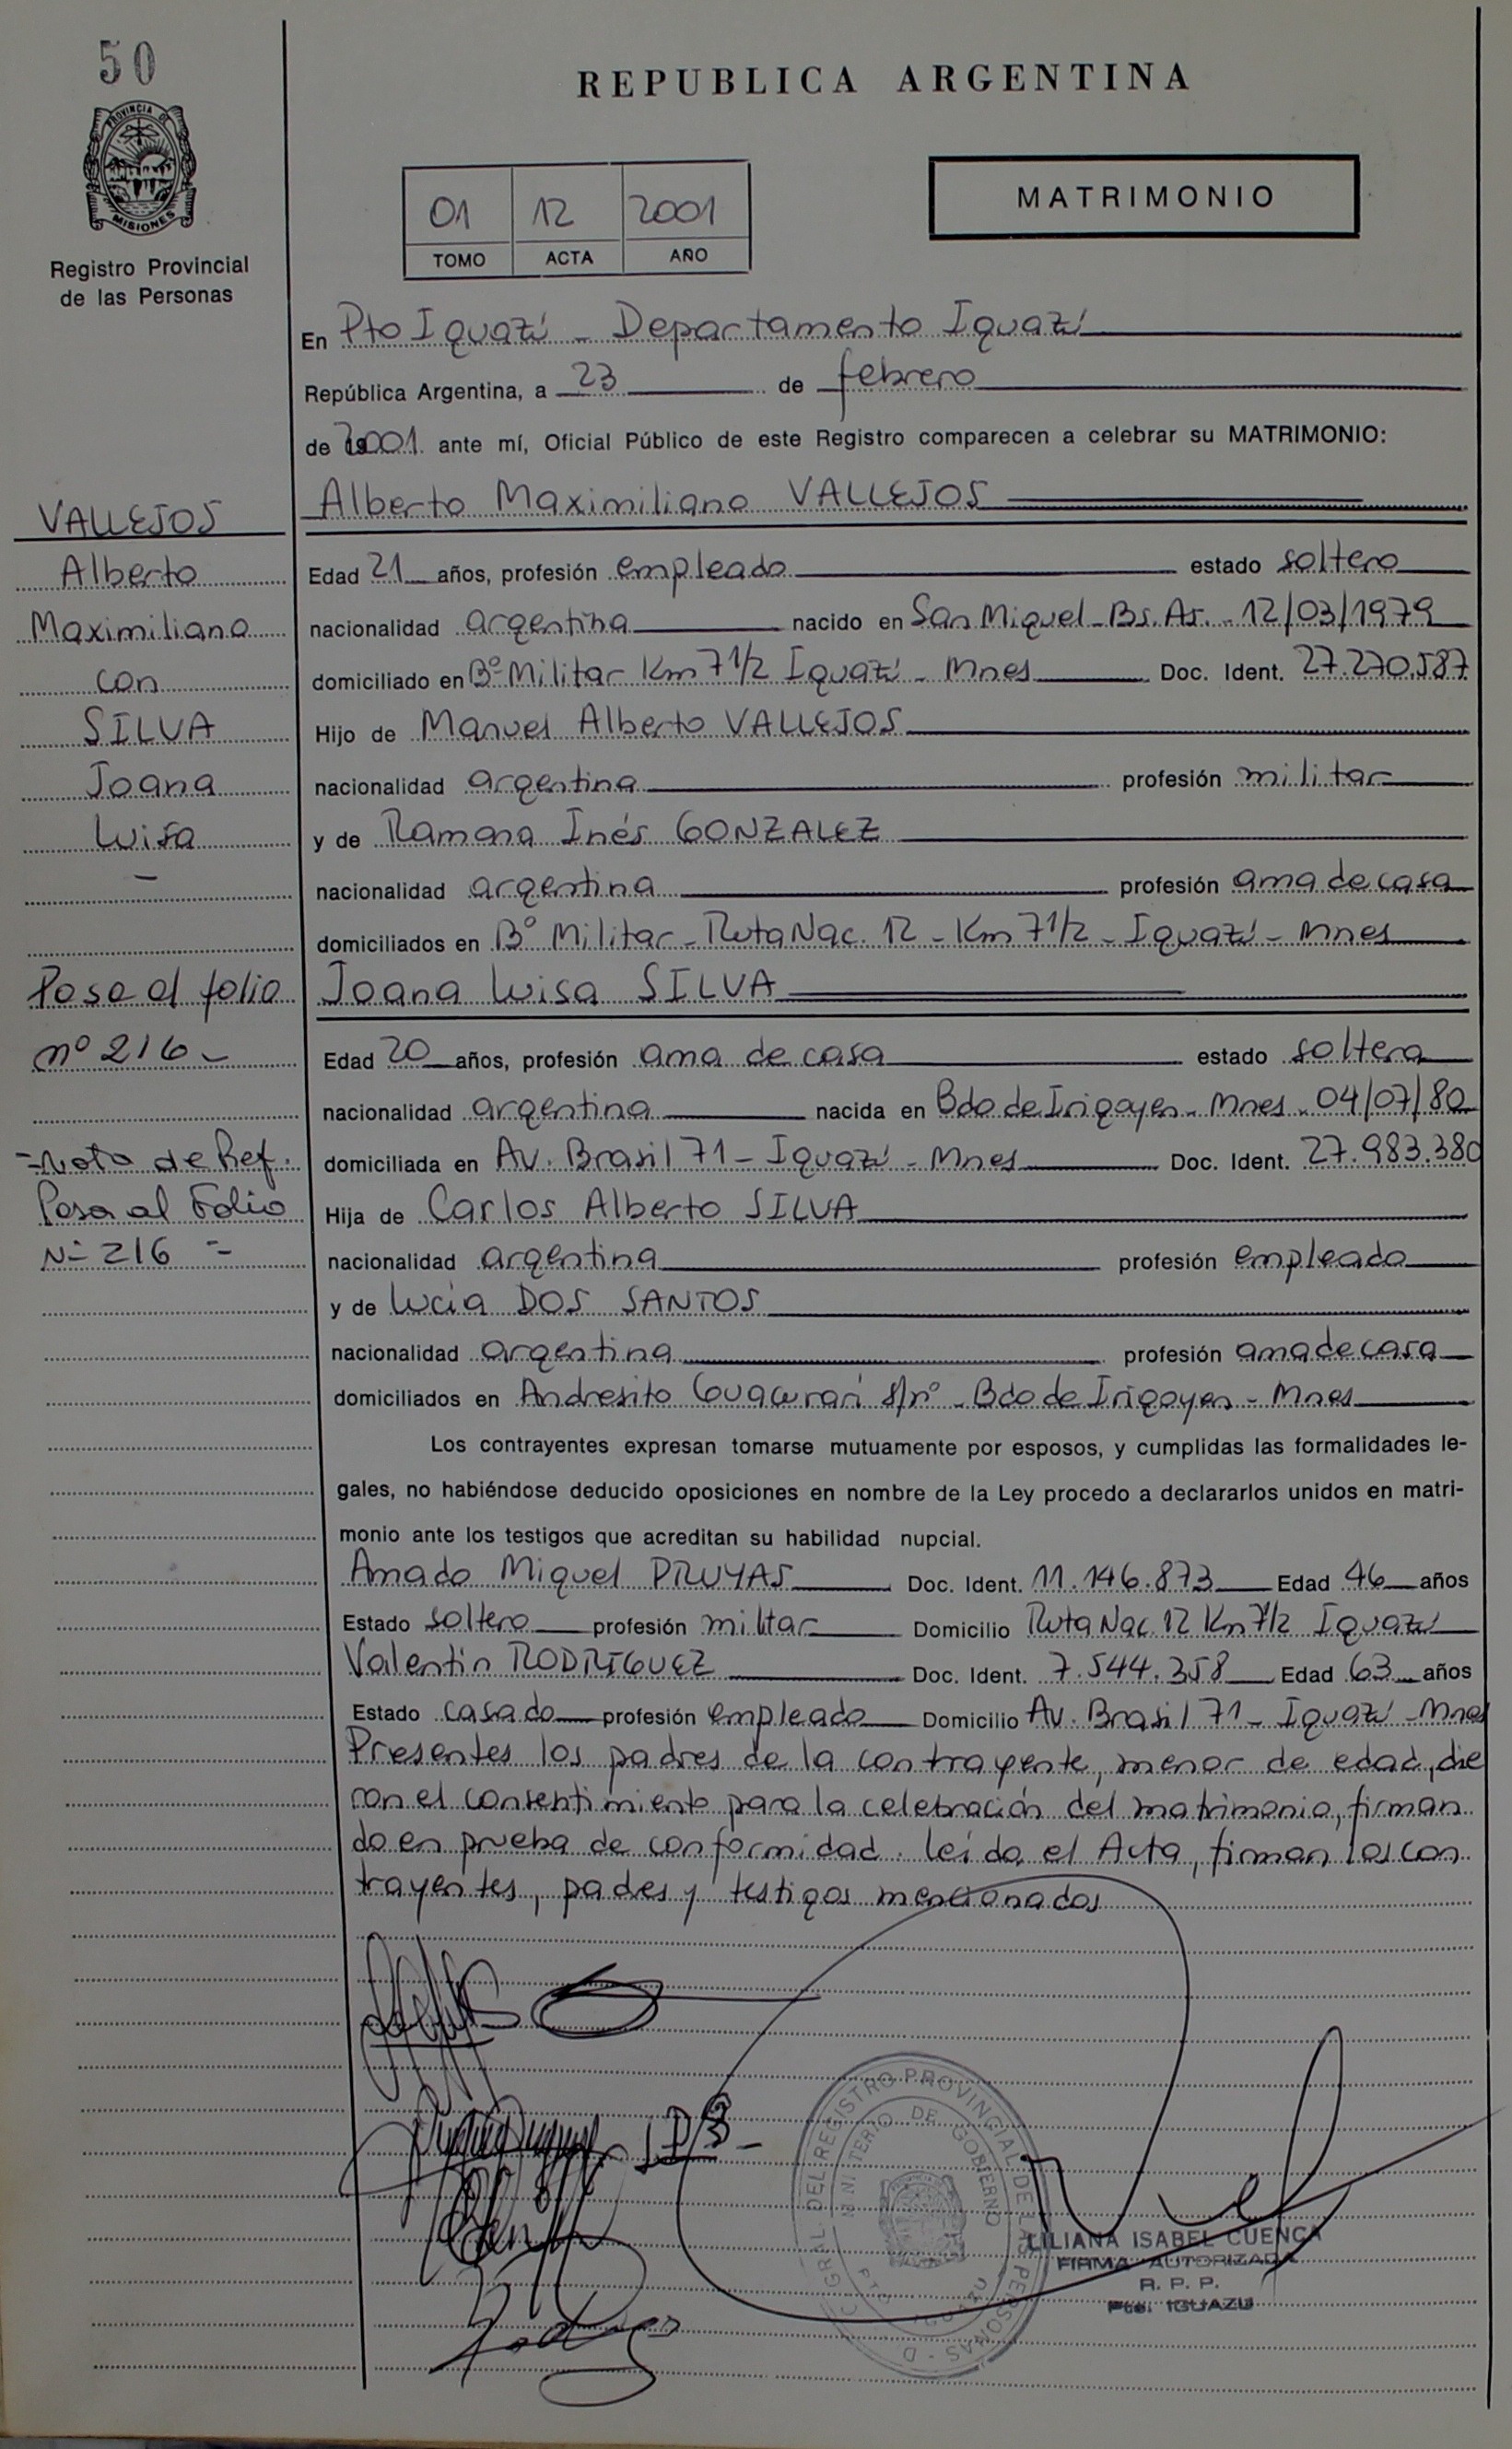 50
REPUBLICA ARGENTINA
PROVINCIA DE
MISIONES
Registro Provincial
de las Personas
01 12 2001
TOMO ACTA AÑO
MATRIMONIO
En Pto Iguazú - Departamento Iguazú
República Argentina, a 23 de febrero
de 2001 ante mí, Oficial Público de este Registro comparecen a celebrar su MATRIMONIO:
Alberto Maximiliano VALLEJOS
VALLEJOS
Alberto
Maximiliano
con
SILVA
Joana
Luisa
-
Pasa al folio
nº 216 -
- Nota de Ref.
Pasa al Folio
Nº 216 =
Edad 21 años, profesión empleado estado soltero
nacionalidad argentina nacido en San Miguel - Bs. As. - 12/03/1979
domiciliado en Bº Militar Km 7 1/2 Iguazú - Mnes Doc. Ident. 27.270.587
Hijo de Manuel Alberto VALLEJOS
nacionalidad argentina profesión militar
y de Ramona Inés GONZALEZ
nacionalidad argentina profesión ama de casa
domiciliados en Bº Militar - Ruta Nac. 12 - Km 7 1/2 - Iguazú - Mnes
Joana Luisa SILVA
Edad 20 años, profesión ama de casa estado soltera
nacionalidad argentina nacida en Bdo de Irigoyen - Mnes - 04/07/80
domiciliada en Av. Brasil 71 - Iguazú - Mnes Doc. Ident. 27.983.380
Hija de Carlos Alberto SILVA
nacionalidad argentina profesión empleado
y de Lucía DOS SANTOS
nacionalidad argentina profesión ama de casa
domiciliados en Andresito Guacurarí s/nº - Bdo de Irigoyen - Mnes
Los contrayentes expresan tomarse mutuamente por esposos, y cumplidas las formalidades le-
gales, no habiéndose deducido oposiciones en nombre de la Ley procedo a declararlos unidos en matri-
monio ante los testigos que acreditan su habilidad nupcial.
Amado Miguel PRUYAS Doc. Ident. 11.146.873 Edad 46 años
Estado soltero profesión militar Domicilio Ruta Nac. 12 Km 7 1/2 Iguazú
Valentin RODRIGUEZ Doc. Ident. 7.544.358 Edad 63 años
Estado casado profesión empleado Domicilio Av. Brasil 71 - Iguazú - Mnes
Presentes los padres de la contrayente, menor de edad, die
ron el consentimiento para la celebración del matrimonio, firman
do en prueba de conformidad. Leída el Acta, firman los con
trayentes, padres y testigos mencionados
GRAL. DEL REGISTRO PROVINCIAL DE LAS PERSONAS - D
MINISTERIO DE GOBIERNO
LILIANA ISABEL CUENCA
FIRMA AUTORIZADA
R. P. P.
Pto. IGUAZU